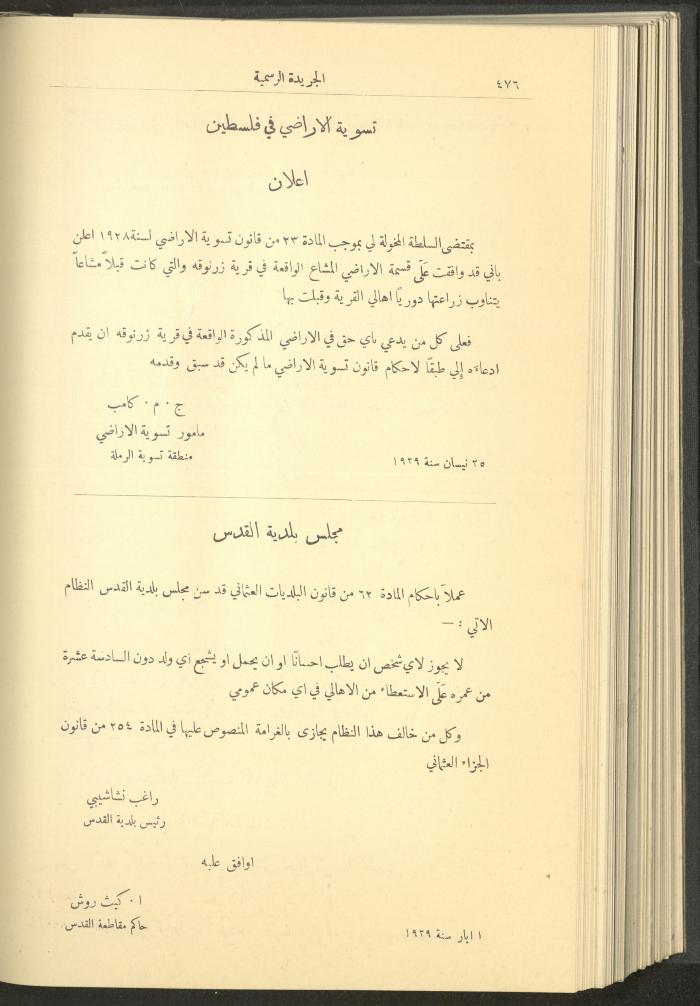 ٤٧٦
الجريدة الرسمية
تسوية الاراضي في فلسطين
اعلان
بمقتضى السلطة المخولة لي بموجب المادة ٢٣ من قانون تسوية الاراضي لسنة ١٩٢٨ اعلن
باني قد وافقت عَلَى قسمة الاراضي المشاع الواقعة في قرية زرنوقه والتي كانت قبلاً مشاعاً
يتناوب زراعتها دوريًا اهالي القرية وقبلت بها
فعلى كل من يدعي باي حق في الاراضي المذكورة الواقعة في قرية زرنوقه ان يقدم
ادعاءه إلي طبقًا لاحكام قانون تسوية الاراضي ما لم يكن قد سبق وقدمه
ج ٠ م ٠ كامب
مامور تسوية الاراضي
منطقة تسوية الرملة
٢٥ نيسان سنة ١٩٢٩
مجلس بلدية القدس
عملاً باحكام المادة ٦٢ من قانون البلديات العثماني قد سن مجلس بلدية القدس النظام
الاتي : —
لا يجوز لاي شخص ان يطلب احسانًا او ان يحمل او يشجع اي ولد دون السادسة عشرة
من عمره عَلَى الاستعطاء من الاهالي في اي مكان عمومي
وكل من خالف هذا النظام يجازى بالغرامة المنصوص عليها في المادة ٢٥٤ من قانون
الجزاء العثماني
راغب نشاشيبي
رئيس بلدية القدس
اوافق عليه
ا ٠ كيث روش
حاكم مقاطعة القدس
١ ايار سنة ١٩٢٩